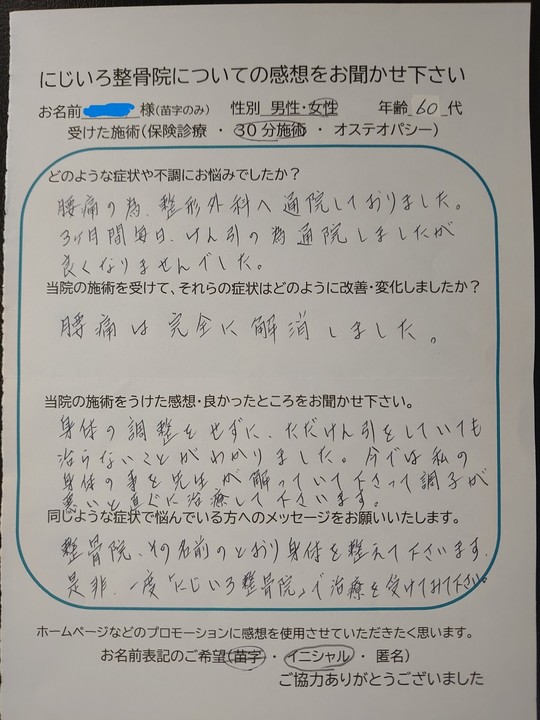 にじいろ整骨院についての感想をお聞かせ下さい
お名前 様(苗字のみ) 性別 男性・女性 年齢 60 代
受けた施術(保険診療・30分施術・オステオパシー)
どのような症状や不調にお悩みでしたか？
腰痛の為、整形外科へ通院しておりました。
3ヶ月間毎日、けん引の為通院しましたが
良くなりませんでした。
当院の施術を受けて、それらの症状はどのように改善・変化しましたか？
腰痛は完全に解消しました。
当院の施術をうけた感想・良かったところをお聞かせ下さい。
身体の調整をせずに、ただけん引をしていても
治らないことがわかりました。今では私の
身体の事を先生が解っていて下さって調子が
悪いと直ぐに治療して下さいます。
同じような症状で悩んでいる方へのメッセージをお願いいたします。
整骨院、その名前のとおり身体を整えて下さいます、
是非、一度「にじいろ整骨院」で治療を受けてみて下さい。
ホームページなどのプロモーションに感想を使用させていただきたく思います。
お名前表記のご希望(苗字・イニシャル・匿名)
ご協力ありがとうございました